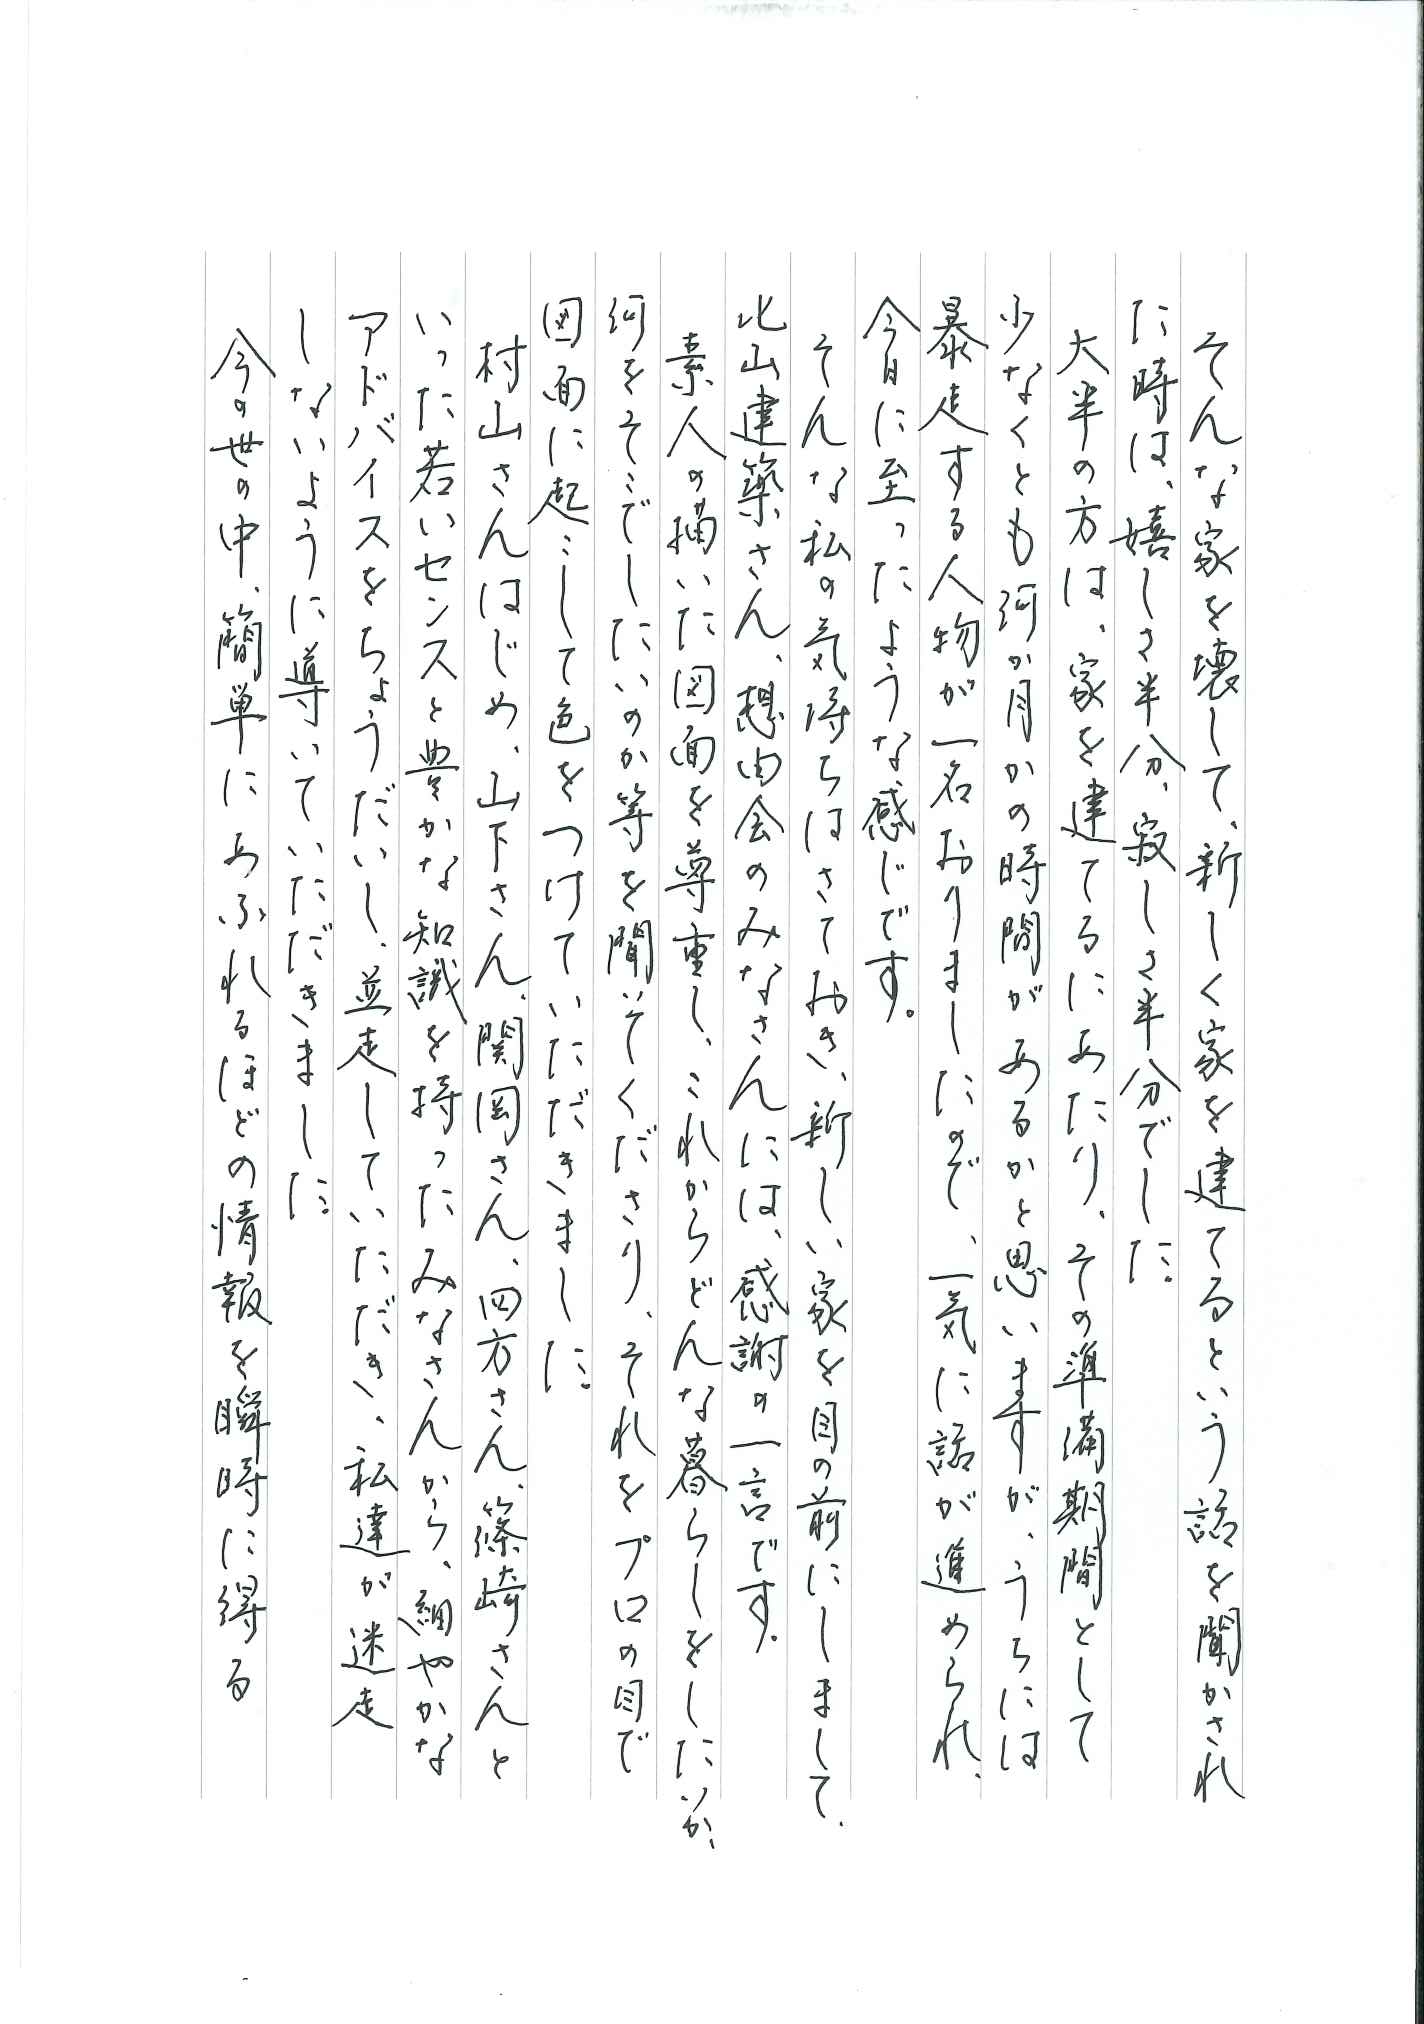 そんな家を壊して、新しく家を建てるという話を聞かされ
た時は、嬉しさ半分、寂しさ半分でした。
大半の方は、家を建てるにあたり、その準備期間として
少なくとも何か月かの時間があるかと思いますが、うちには
暴走する人物が一名おりましたので、一気に話が進められ、
今日に至ったような感じです。
そんな私の気持ちはさておき、新しい家を目の前にしまして、
北山建築さん、想由会のみなさんには、感謝の一言です。
素人の描いた図面を尊重し、これからどんな暮らしをしたいか、
何をそこでしたいのか等を聞いてくださり、それをプロの目で
図面に起こして色をつけていただきました。
村山さんはじめ、山下さん、関岡さん、四方さん、篠崎さんと
いった若いセンスと豊かな知識を持ったみなさんから、細やかな
アドバイスをちょうだいし、並走していただき、私達が迷走
しないように導いていただきました。
今の世の中、簡単にあふれるほどの情報を瞬時に得る